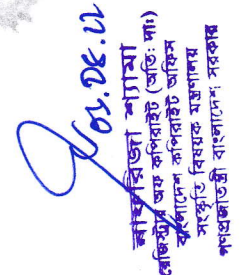 ০১.০৪.২২
রেজিস্ট্রার অফ কপিরাইট (অতি: দা:)
বাংলাদেশ কপিরাইট অফিস
সংস্কৃতি বিষয়ক মন্ত্রণালয়
গণপ্রজাতন্ত্রী বাংলাদেশ সরকার